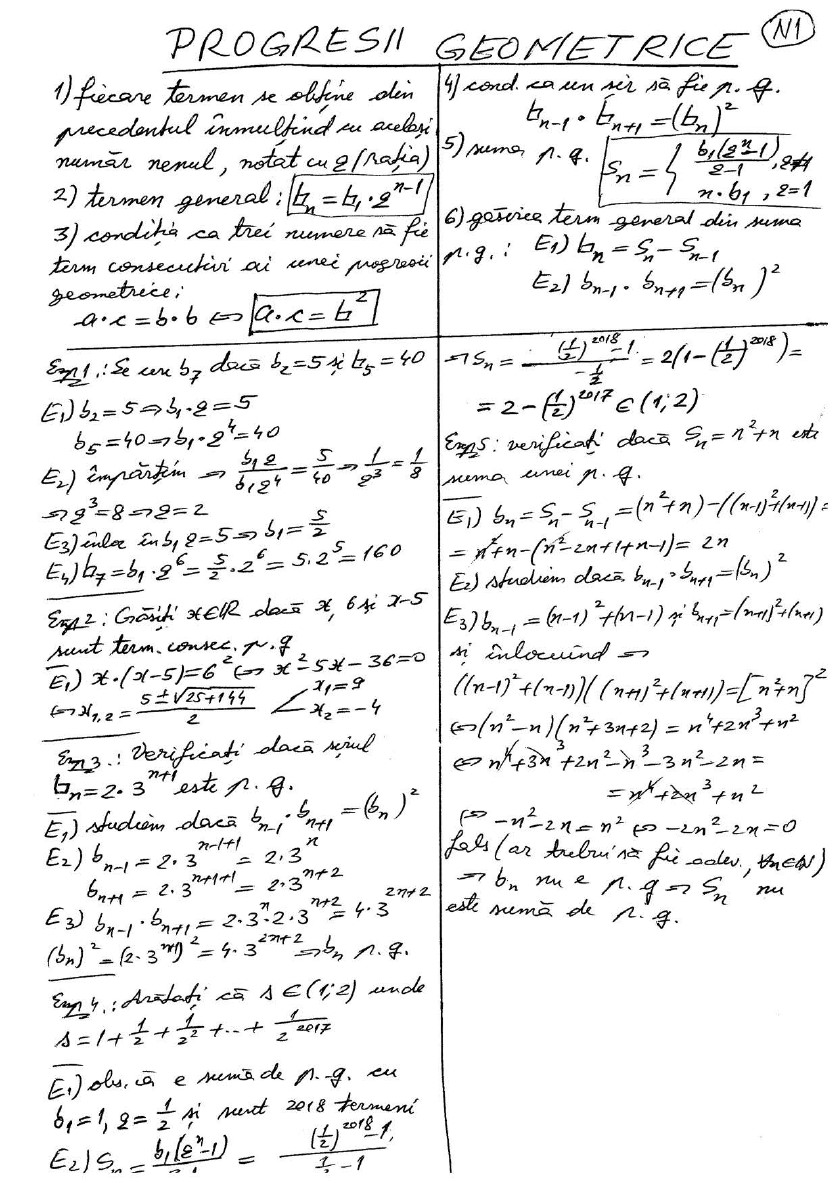 PROGRESII GEOMETRICE N1
1) fiecare termen se obține din
precedentul înmulțind cu același
număr nenul, notat cu q (rația)
2) termen general: bₙ = b₁·qⁿ⁻¹
3) condiția ca trei numere să fie
term consecutivi ai unei progresii
geometrice:
a·c = b·b ⇔ a·c = b²
4) cond. ca un șir să fie p.g.
bₙ₋₁ · bₙ₊₁ = (bₙ)²
5) suma p.g. Sₙ = { b₁(qⁿ-1)/(q-1), q≠1
n·b₁, q=1
6) găsirea term general din suma
p.g.: E₁) bₙ = Sₙ - Sₙ₋₁
E₂) bₙ₋₁ · bₙ₊₁ = (bₙ)²
Exp1.: Se cere b₇ dacă b₂=5 și b₅=40
E₁) b₂=5 ⇒ b₁·q=5
b₅=40 ⇒ b₁·q⁴=40
E₂) împărțim ⇒ b₁q/b₁q⁴ = 5/40 ⇒ 1/q³ = 1/8
⇒ q³=8 ⇒ q=2
E₃) înloc în b₁q=5 ⇒ b₁=5/2
E₄) b₇=b₁·q⁶=5/2·2⁶=5·2⁵=160
Exp2: Găsiți x∈ℝ dacă x, 6 și x-5
sunt term. consec. p.g
E₁) x·(x-5)=6² ⇔ x²-5x-36=0
⇔ x₁,₂ = (5±√(25+144))/2 < x₁=9
x₂=-4
Exp3.: Verificați dacă șirul
bₙ=2·3ⁿ⁺¹ este p.g.
E₁) studiem dacă bₙ₋₁·bₙ₊₁=(bₙ)²
E2) bₙ₋₁ = 2·3ⁿ⁻¹⁺¹ = 2·3ⁿ
bₙ₊₁ = 2·3ⁿ⁺¹⁺¹ = 2·3ⁿ⁺²
E3) bₙ₋₁·bₙ₊₁ = 2·3ⁿ·2·3ⁿ⁺² = 4·3²ⁿ⁺²
(bₙ)²=(2·3ⁿ⁺¹)²=4·3²ⁿ⁺² ⇒ bₙ p.g.
Exp4.: Arătați că s∈(1;2) unde
s=1+1/2+1/2²+...+1/2²⁰¹⁷
E₁) obs. că e sumă de p.g. cu
b₁=1, q=1/2 și sunt 2018 termeni
E2) Sₙ = b₁(qⁿ-1)/(q-1) = ((1/2)²⁰¹⁸-1)/(1/2-1)
⇒ Sₙ = ((1/2)²⁰¹⁸-1)/(-1/2) = 2(1-(1/2)²⁰¹⁸) =
= 2-(1/2)²⁰¹⁷ ∈ (1;2)
Exp5: verificați dacă Sₙ=n²+n este
suma unei p.g.
E₁) bₙ=Sₙ-Sₙ₋₁=(n²+n)-((n-1)²+(n-1))=
= n²+n-(n²-2n+1+n-1)= 2n
E₂) studiem dacă bₙ₋₁·bₙ₊₁=(bₙ)²
E₃) bₙ₋₁=(n-1)²+(n-1) și bₙ₊₁=(n+1)²+(n+1)
și înlocuind ⇒
((n-1)²+(n-1))((n+1)²+(n+1))=[n²+n]²
⇔(n²-n)(n²+3n+2)=n⁴+2n³+n²
⇔ n⁴+3n³+2n²-n³-3n²-2n=
= n⁴+2n³+n²
⇔ -n²-2n=n² ⇔ -2n²-2n=0
fals (ar trebui să fie adev., ∀n∈ℕ)
⇒ bₙ nu e p.g ⇒ Sₙ nu
este sumă de p.g.